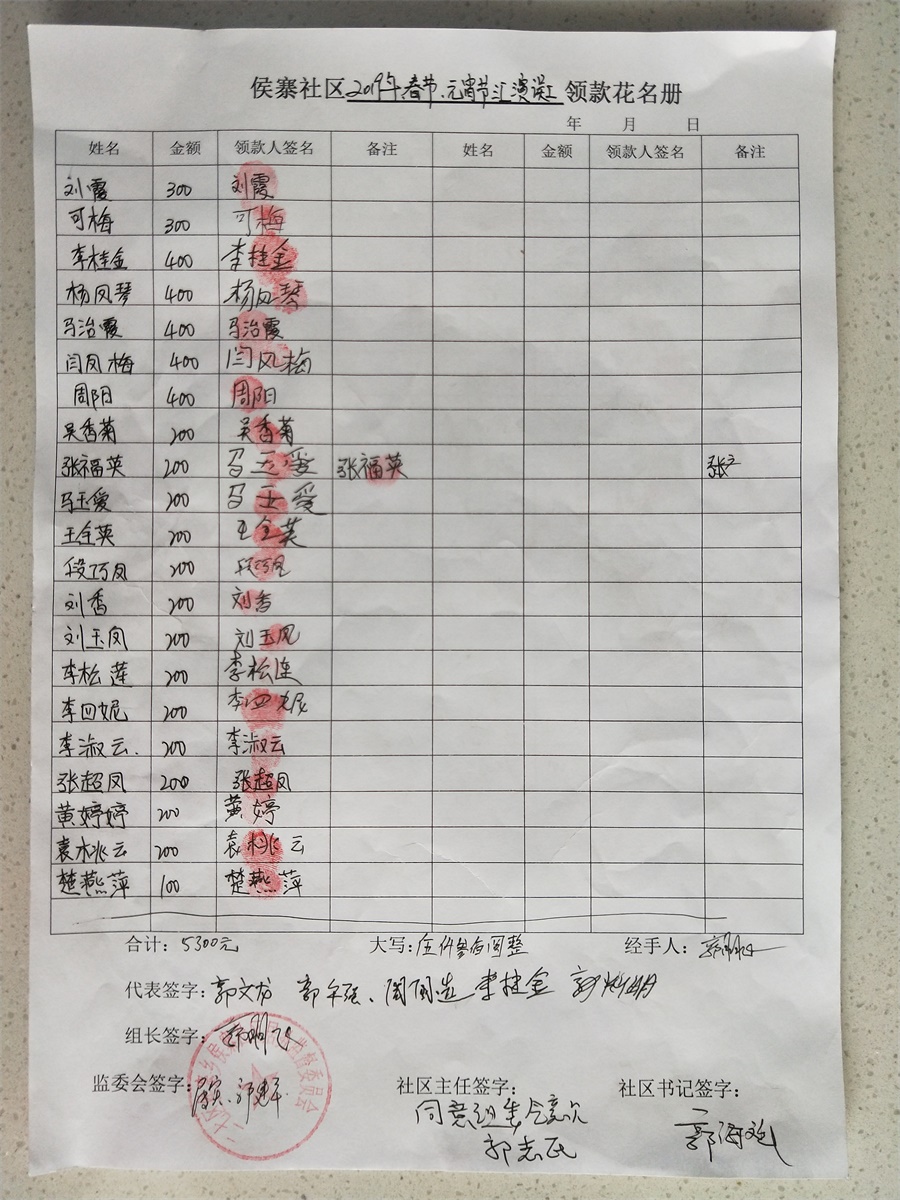 侯寨社区2019年春节、元宵节汇演误工领款花名册
年 月 日
姓名 金额 领款人签名 备注 姓名 金额 领款人签名 备注
刘霞 300 刘霞
可梅 300 可梅
李桂金 400 李桂金
杨凤琴 400 杨凤琴
马治霞 400 马治霞
闫凤梅 400 闫凤梅
周阳 400 周阳
吴香菊 200 吴香菊
张福英 200 马玉爱 张福英 张
马玉爱 200 马玉爱
王全英 200 王全英
段巧凤 200 段巧凤
刘香 200 刘香
刘玉凤 200 刘玉凤
李松莲 200 李松连
李四妮 200 李四妮
李淑云. 200 李淑云
张超凤 200 张超凤
黄婷婷 200 黄婷
袁桃云 200 袁桃云
楚燕萍 100 楚燕萍
合计: 5300元 大写: 伍仟叁佰圆整 经手人:
代表签字: 郭文 李桂金
组长签字:
监委会签字: 社区主任签字: 社区书记签字:
同意组委会意见
郭志民 郭海